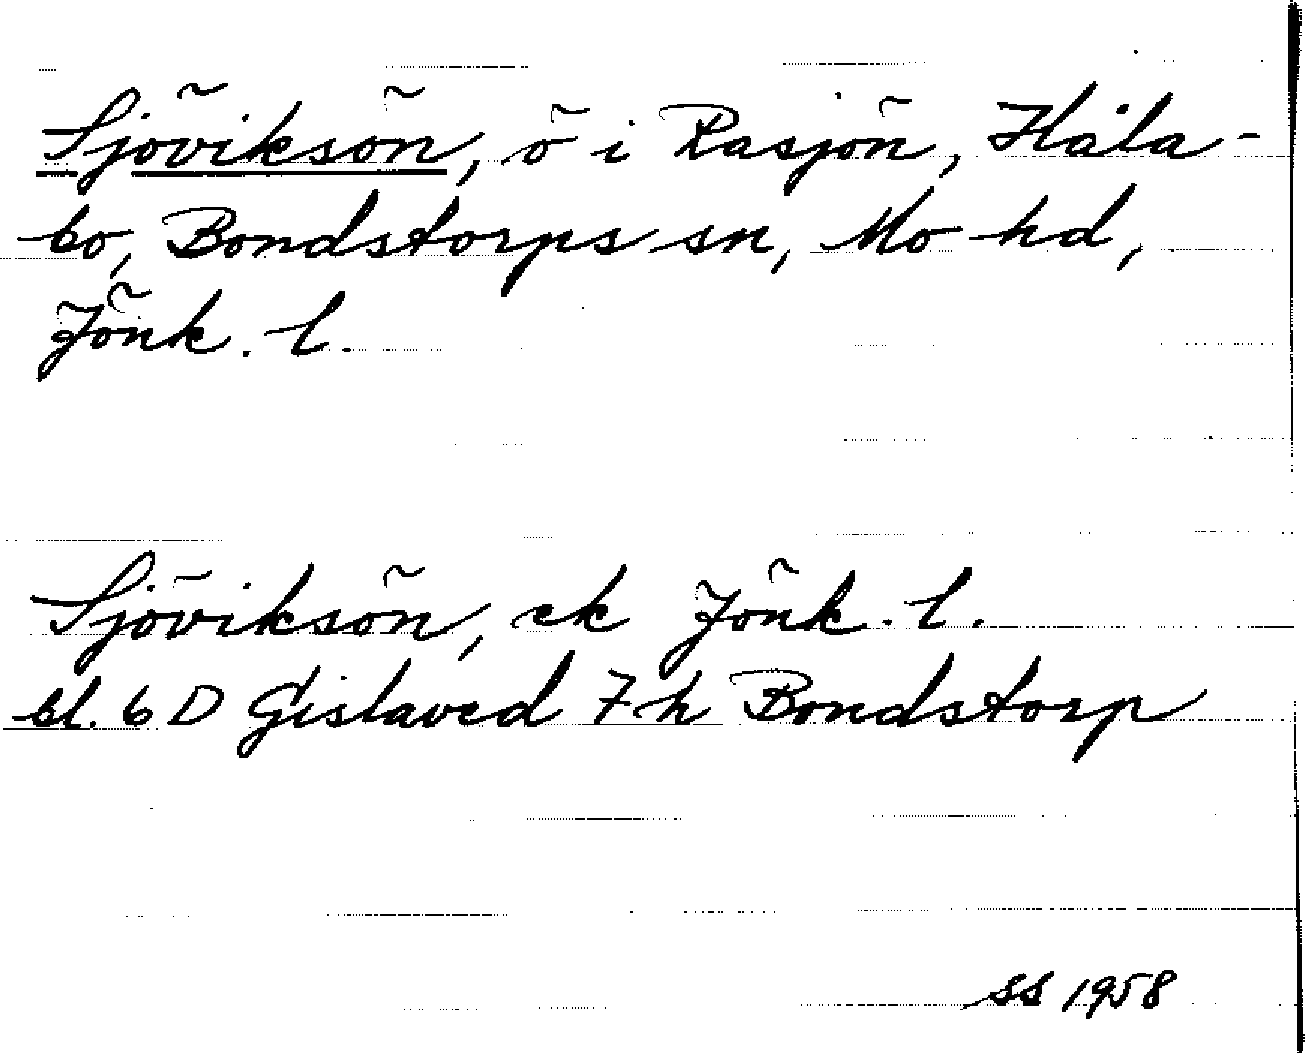 Sjöviksön, ö i Rasjön, Håla-
bo, Bondstorps sn, Mo hd,
Jönk. l.
Sjöviksön, ek Jönk. l.
bl. 6 D Gislaved 7 h Bondstorp
SS 1958